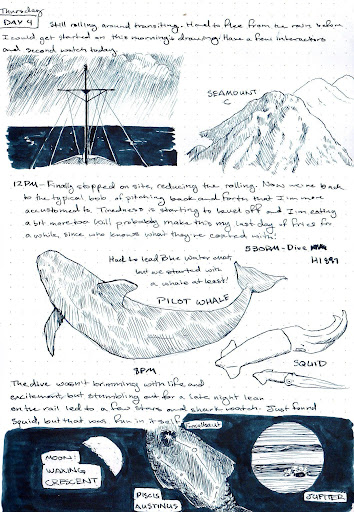 Thursday
DAY 4
Still rolling around transiting. Had to flee from the rain before
I could get started on this morning's drawing. Have a few interactions
and second watch today.
SEAMOUNT
C
12PM - Finally stopped on site, reducing the rolling. Now we're back
to the typical bob of pitching back and forth that I'm more
accustomed to. Tiredness is starting to level off and I'm eating
a bit more too. Will probably make this my last day of fries for
a while, since who knows what they're coated with.
530PM - Dive
Had to lead Blue Water chat,
but we started with
a whale at least!
PILOT WHALE
SQUID
8PM
The dive wasn't brimming with life and
excitement, but stumbling out for a late night lean
on the rail led to a few stars and shark watch. Just found
squid, but that was fun in itself.
Fomalhaut
MOON:
WAXING
CRESCENT
PISCIS
AUSTRINUS
JUPITER